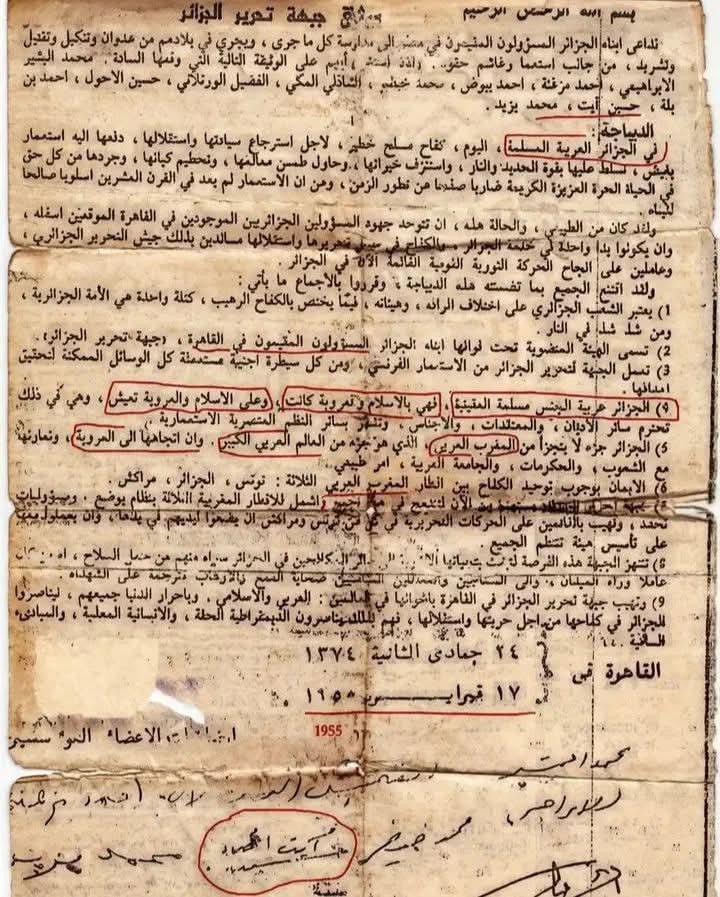 بسم الله الرحمن الرحيم
ميثاق جبهة تحرير الجزائر
تداعى ابناء الجزائر المسؤولون المقيمون في مصر الى مدارسة كل ما جرى ، ويجري في بلادهم من عدوان وتنكيل وتقتيل
وتشريد ، من جانب استعمار وغاشم حقود . على الوثيقة التالية التي وقعها السادة . محمد البشير
الابراهيمي ، احمد مزغنة ، احمد بيوض ، محمد خيضر ، الشاذلي المكي ، الفضيل الورتلاني ، حسين الاحول ، احمد بن
بلة ، حسين آيت ، محمد يزيد .
الديباجة :
في الجزائر العربية المسلمة ، اليوم ، كفاح مسلح خطير ، لاجل استرجاع سيادتها واستقلالها ، دفعها اليه استعمار
بغيض ، تسلط عليها بقوة الحديد والنار ، واستنزف خيراتها ، وحاول طمس معالمها ، وتحطيم كيانها ، وجردها من كل حق
في الحياة الحرة العزيزة الكريمة ضاربا صفحا عن تطور الزمن ، وعن ان الاستعمار لم يعد في القرن العشرين اسلوبا صالحا
للبناء .
ولقد كان من الطبيعي ، والحالة هذه ، ان تتوحد جهود المسؤولين الجزائريين الموجودين في القاهرة الموقعين اسفله ،
وان يكونوا يدا واحدة في خدمة الجزائر . والكفاح في سبيل تحريرها واستقلالها مساندين بذلك جيش التحرير الجزائري ،
وعاملين على انجاح الحركة الثورية القومية القائمة الآن في الجزائر .
ولقد اقتنع الجميع بما تضمنته هذه الديباجة ، وقرروا بالأجماع ما يأتي :
1) يعتبر الشعب الجزائري على اختلاف افراده ، وهيئاته ، فيما يختص بالكفاح الرهيب ، كتلة واحدة هي الأمة الجزائرية ،
ومن شذ شذ في النار .
2) تسمى الهيئة المنضوية تحت لوائها ابناء الجزائر المسؤولون المقيمون في القاهرة ، (جبهة تحرير الجزائر) .
3) تعمل الجبهة لتحرير الجزائر من الاستعمار الفرنسي ، ومن كل سيطرة اجنبية مستخدمة كل الوسائل الممكنة لتحقيق
اهدافها .
4) الجزائر عربية الجنس مسلمة العقيدة ، فهي بالاسلام والعروبة كانت ، وعلى الاسلام والعروبة تعيش ، وهي في ذلك
تحترم سائر الأديان ، والمعتقدات ، والأجناس ، وتشهر بسائر النظم العنصرية الاستعمارية .
5) الجزائر جزء لا يتجزأ من المغرب العربي ، الذي هو جزء من العالم العربي الكبير . وان اتجاهها الى العروبة ، وتعاونها
مع الشعوب ، والحكومات ، والجامعة العربية ، امر طبيعي .
6) الايمان بوجوب توحيد الكفاح بين اقطار المغرب العربي الثلاثة : تونس ، الجزائر ، مراكش .
من الآن لتندمج في اشمل للاقطار المغربية الثلاثة بنظام يوضع . ومسؤوليات
تحدد ، وتهيب بالقائمين على الحركات التحريرية في كل من تونس ومراكش ان يضعوا ايديهم في يدها ، وان يعملوا معها
على تأسيس هيئة تنتظم الجميع .
8) تنتهز الجبهة هذه الفرصة الجزائر سواء منهم من حمل السلاح ،
عاملا وراء الميدان ، والى المساجين والمعتقلين السياسيين ضحايا القمع والارهاب مترحمة على الشهداء .
9) وتهيب جبهة تحرير الجزائر في القاهرة باخوانها في العالمين : العربي والاسلامي . وباحرار الدنيا جميعهم ، ليناصروا
الجزائر في كفاحها من اجل حريتها واستقلالها ، فهم بذلك يناصرون الديمقراطية الحقة ، والانسانية المعذبة ، والمبادىء
السامية .
القاهرة في
٢٤ جمادى الثانية ١٣٧٤
١٧ فبراير ١٩٥٥
1955
الاعضاء
محمد البشير
الابراهيمي
محمد خيضر
محمد يزيد